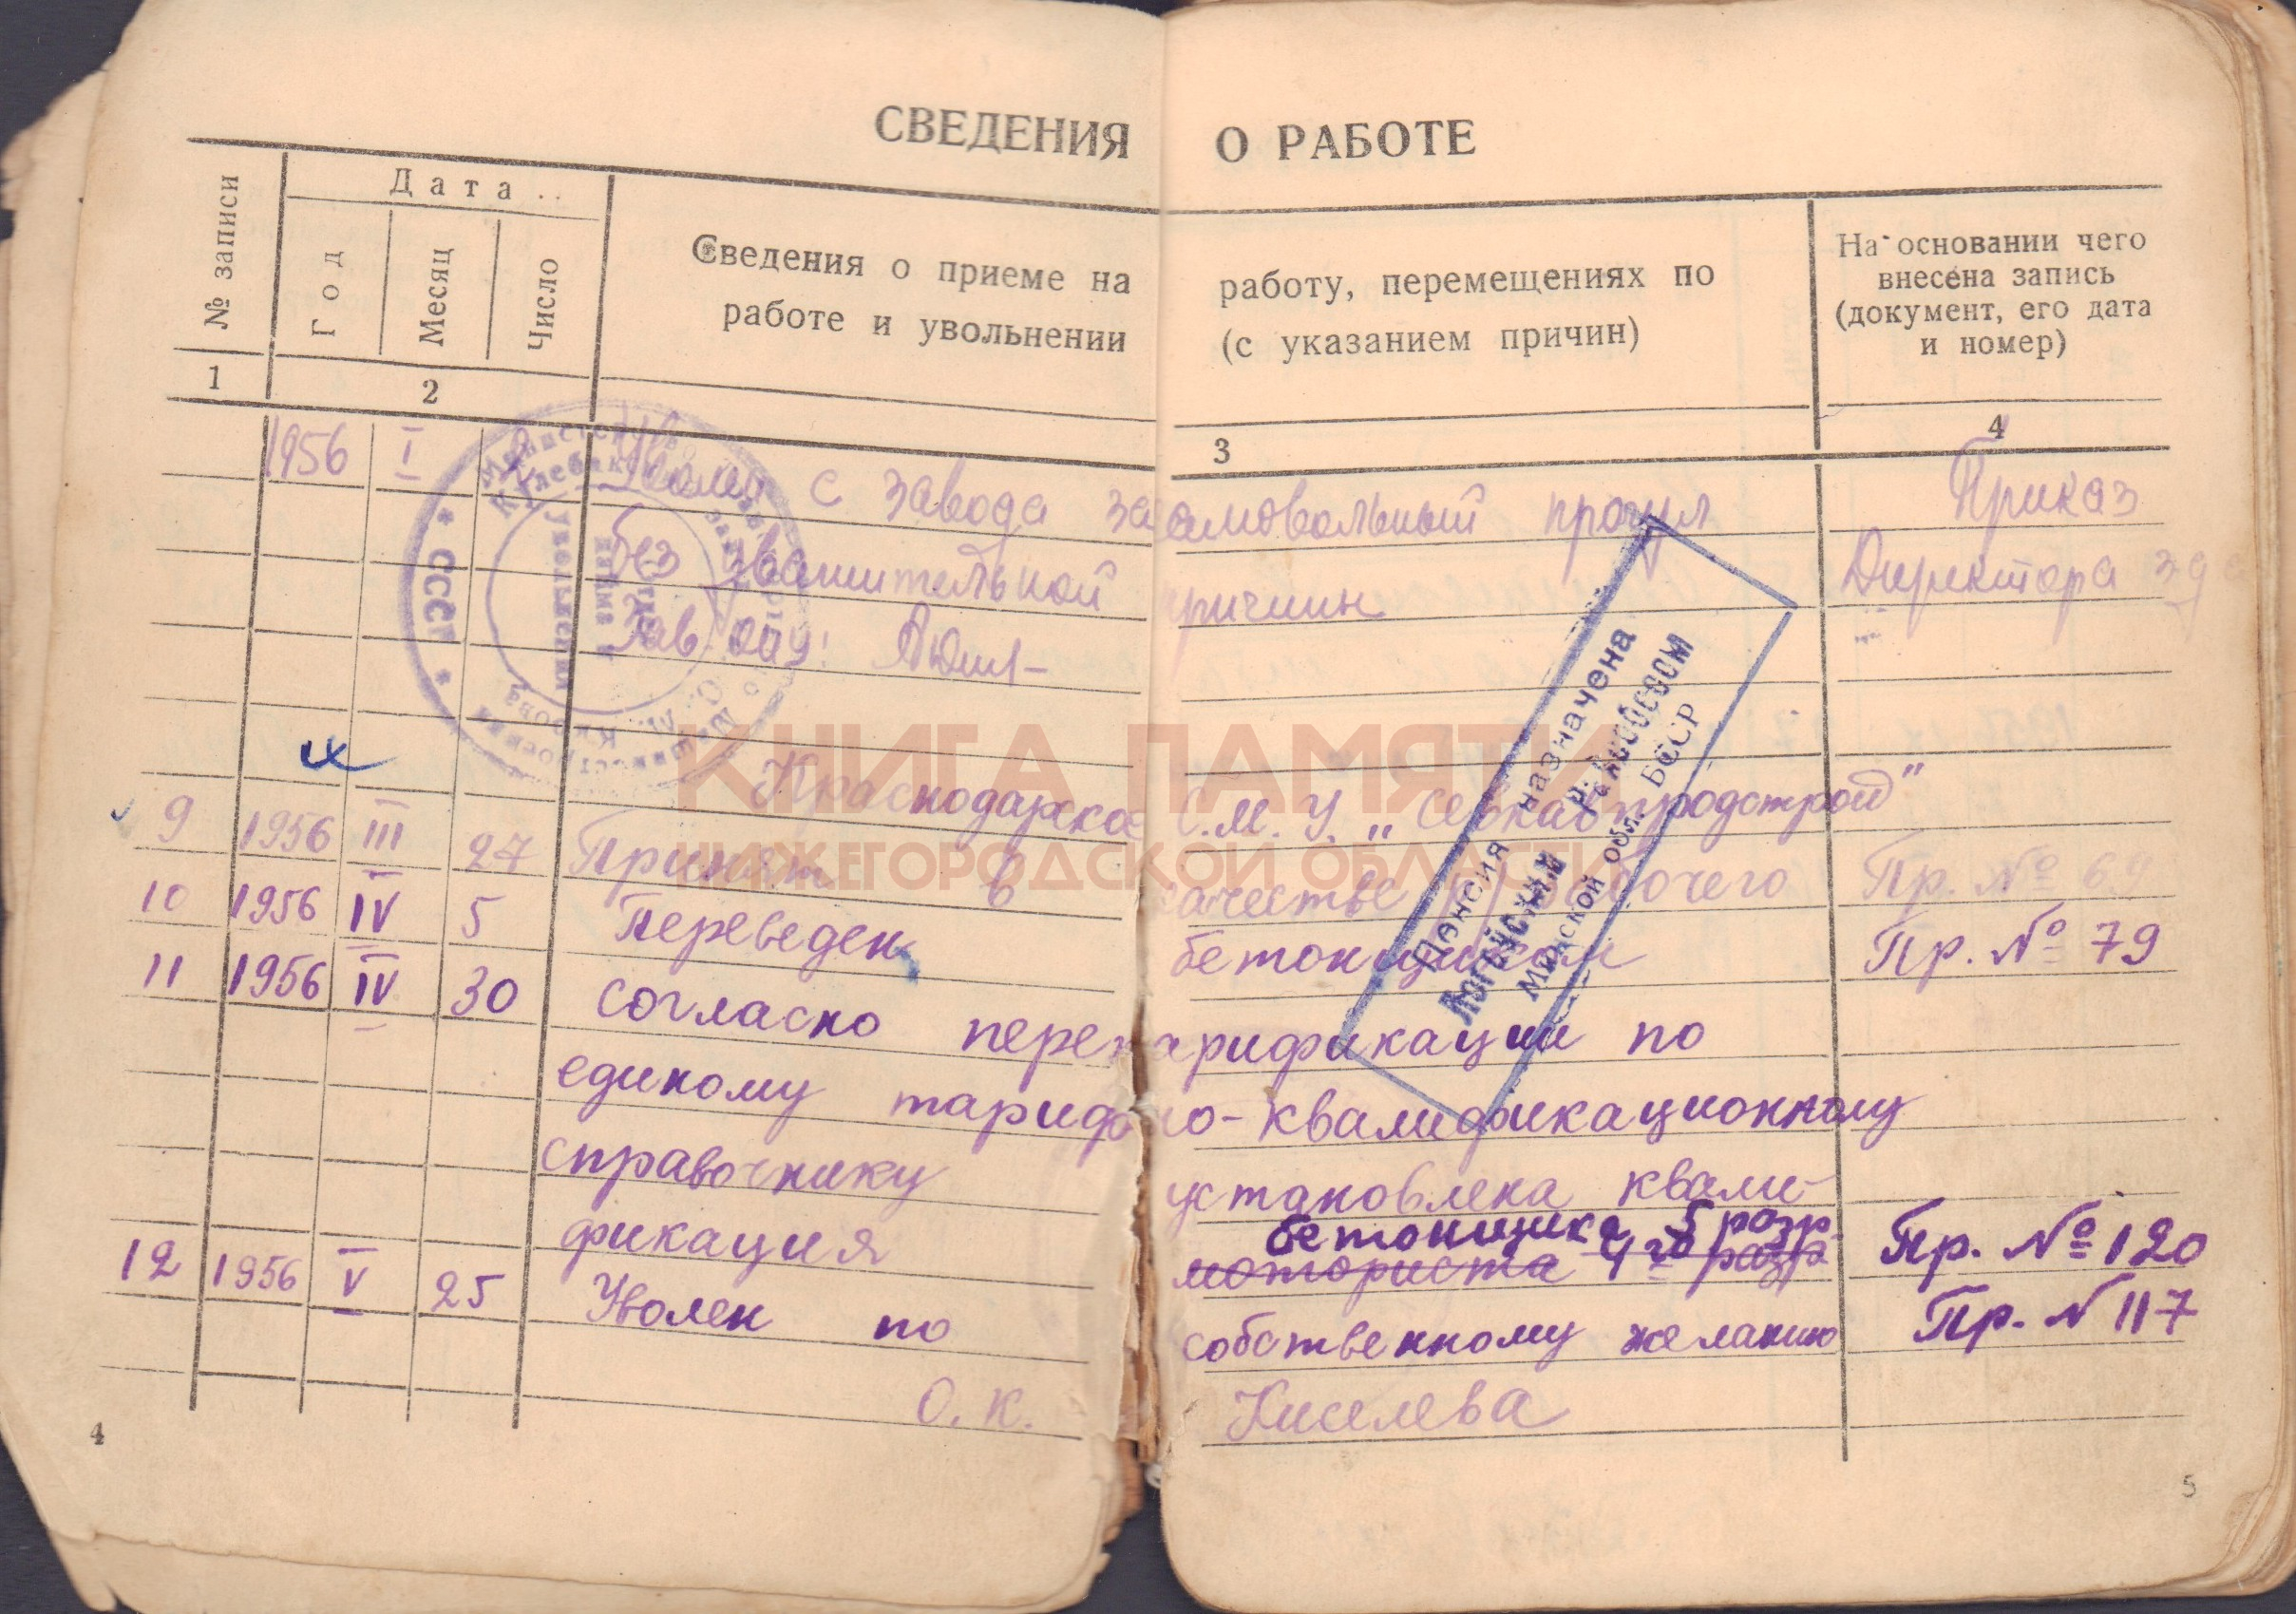 СВЕДЕНИЯ О РАБОТЕ
№ записи
Дата
Год
Месяц
Число
Сведения о приеме на работу, перемещениях по
работе и увольнении (с указанием причин)
На основании чего
внесена запись
(документ, его дата
и номер)
1 2 3 4
1956 I с завода за самовольный прогул Приказ
без уважительной причин Директора
Зав.
СССР
Краснодарское С.М.У. „Севкавпродстрой"
9 1956 III 27 Принят в качестве рабочего Пр. № 69
10 1956 IV 5 Переведен бетонщиком Пр. № 79
11 1956 IV 30 Согласно перетарификации по
единому тарифно-квалификационному
справочнику установлена квали-
бетонщика 5 разр.
фикация моториста 4го разр Пр. № 120
12 1956 V 25 Уволен по собственному желанию Пр. N 117
О.К. Киселева
Пенсия назначена
Логойским райсобесом
Минской обл. БССР
КНИГА ПАМЯТИ
НИЖЕГОРОДСКОЙ ОБЛАСТИ
4
5